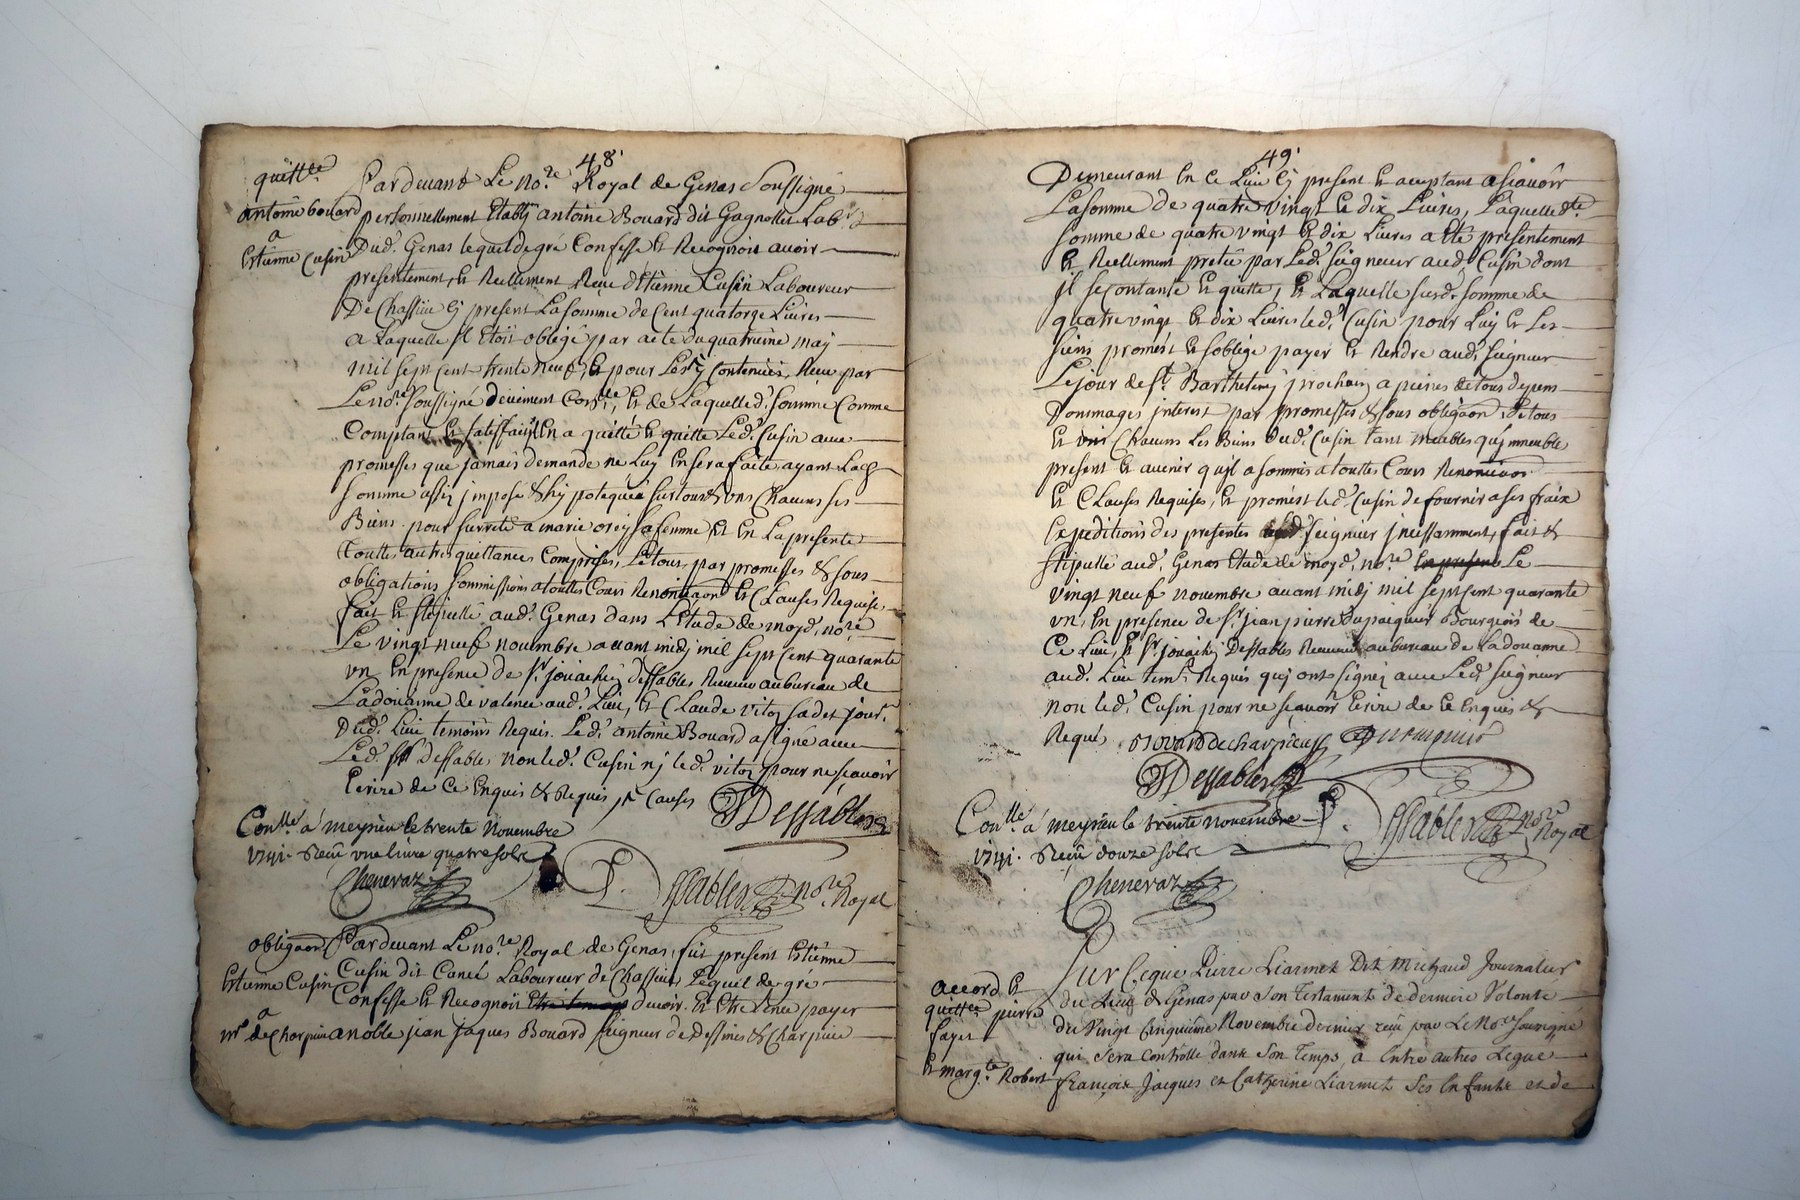 48
quittce
antoine bouard
a
Estienne Cusin
Pardevant Le no.re Royal de Genas Soussigné
personnellement Etably antoine Bouard dit Gagnollet Lab.r
Dud.' Genas lequel de gré Confesse et Recognoit avoir
presentement, et Reellement Reçu d'Etienne Cusin Laboureur
De Chassieu cy present La somme de Cent quatorze Livres
a Laquelle il Etoit obligé par acte du quatrieme may
mil sept cent trente neuf, et pour Les y contenües, Reçu par
Le no.re soussigné deüement Con.lle, et de Laquelle d.' somme Comme
Comptant et satisfait En a quitté et quitte Led.' Cusin avec
promesses que jamais demande ne Luy En sera faite ayant Lad.
somme assis imposé & hypotequée sur tous & uns Chacuns ses
Biens pour surreté a marie orcy sa femme et En La presente
Touttes autres quittances Comprises, Le tout par promesses & sous
obligations soumissions a touttes Cours Renontiaons et Clauses Requise,
fait et stipullé aud.' Genas dans L'Etude de moyd. no.re
Le vingt neuf novembre avant midj mil sept cent quarante
un En presence de S.r joiachin dessables Receveur au bureau de
La doüanne de valence aud.' Lieu, et Claude viton cadet jour.r
Dud.' Lieu temoins Requis. Led.' antoine Bouard a signé avec
Led. sr dessables non led.' Cusin nj led.' viton pour ne sçavoir
Ecrire de Ce Enquis & Requis
Dessables
Con.llé a meysieu le trente Novembre
1741. Reçu une livre quatre sols
Cheneraz
Dessables no.re Royal
obligaon
Estienne Cusin
a
mr de Charpieu
Pardevant Le no.re Royal de Genas, fut present Estienne
Cusin dit Canet Laboureur de Chassieu, Lequel de gré
Confesse et Recognoit devoir et Etre tenu payer
a noble jean jaques Bouard seigneur de Dessines & Charpieu
49
Demeurant En ce Lieu Cy present et aceptant a sçavoir
La somme de quatre vingt et dix Livres, Laquelle d.te
somme de quatre vingt et dix Livres a Eté presentement
et Reellement pretée par Led.' seigneur aud.' Cusin dont
il se contante et quitte, et Laquelle susd. somme de
quatre vingt et dix Livres led.' Cusin pour Luy et Les
siens promest et s'oblige payer et Rendre aud.' seigneur
Le jour de s.t Barthelemy prochain a peines de tous depens
Dommages interest par promesses & sous obligaon de tous
et uns Chacuns Les Biens Dud.' Cusin tant meubles qu'jmmeubles
present et avenir qu'il a soumis a touttes Cours Renontiaons
et Clauses Requises, et promest led.' Cusin de fournir a ses fraix
Expeditions des presentes aud.' seigneur jncessamment, fait &
stipullé aud.' Genas Etude de moyd.' no.re Le
vingt neuf novembre avant midj mil sept cent quarante
un, En presence de s.r jean pierre Bourgeois de
Ce Lieu, et s.r joiachin Dessables Receveur au bureau de La doüanne
aud.' Lieu tem.s Requis quj ont signez avec Led.' seigneur
non led.' Cusin pour ne sçavoir Ecrire de ce Enquis &
Requis Bovard de charpieu
Dessables
Con.llé a meysieu le trente novembre
1741. Reçu douze sols
Cheneraz
Dessables no.re Royal
accord et
quittce pierre
fayet
et marg.te Robert
Sur Ceque Pierre Liarmet Dit Michaud Journalier
du Lieu de Genas par Son Testament de derniere Volonté
du Vingt Cinquième Novembre dernier reçu par Le No.re soussigné
qui Sera Contrôllé dans Son Temps, a Entre autres Legué
François Jacques et Catherine Liarmet Ses Enfants et de